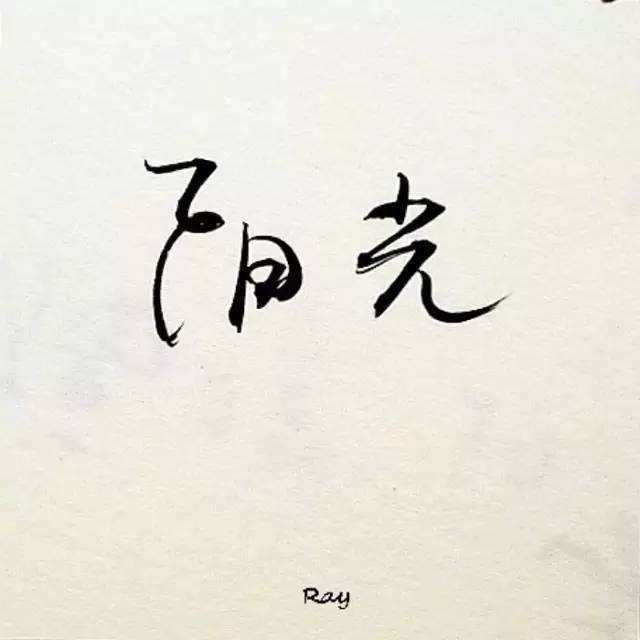 阳光
Ray